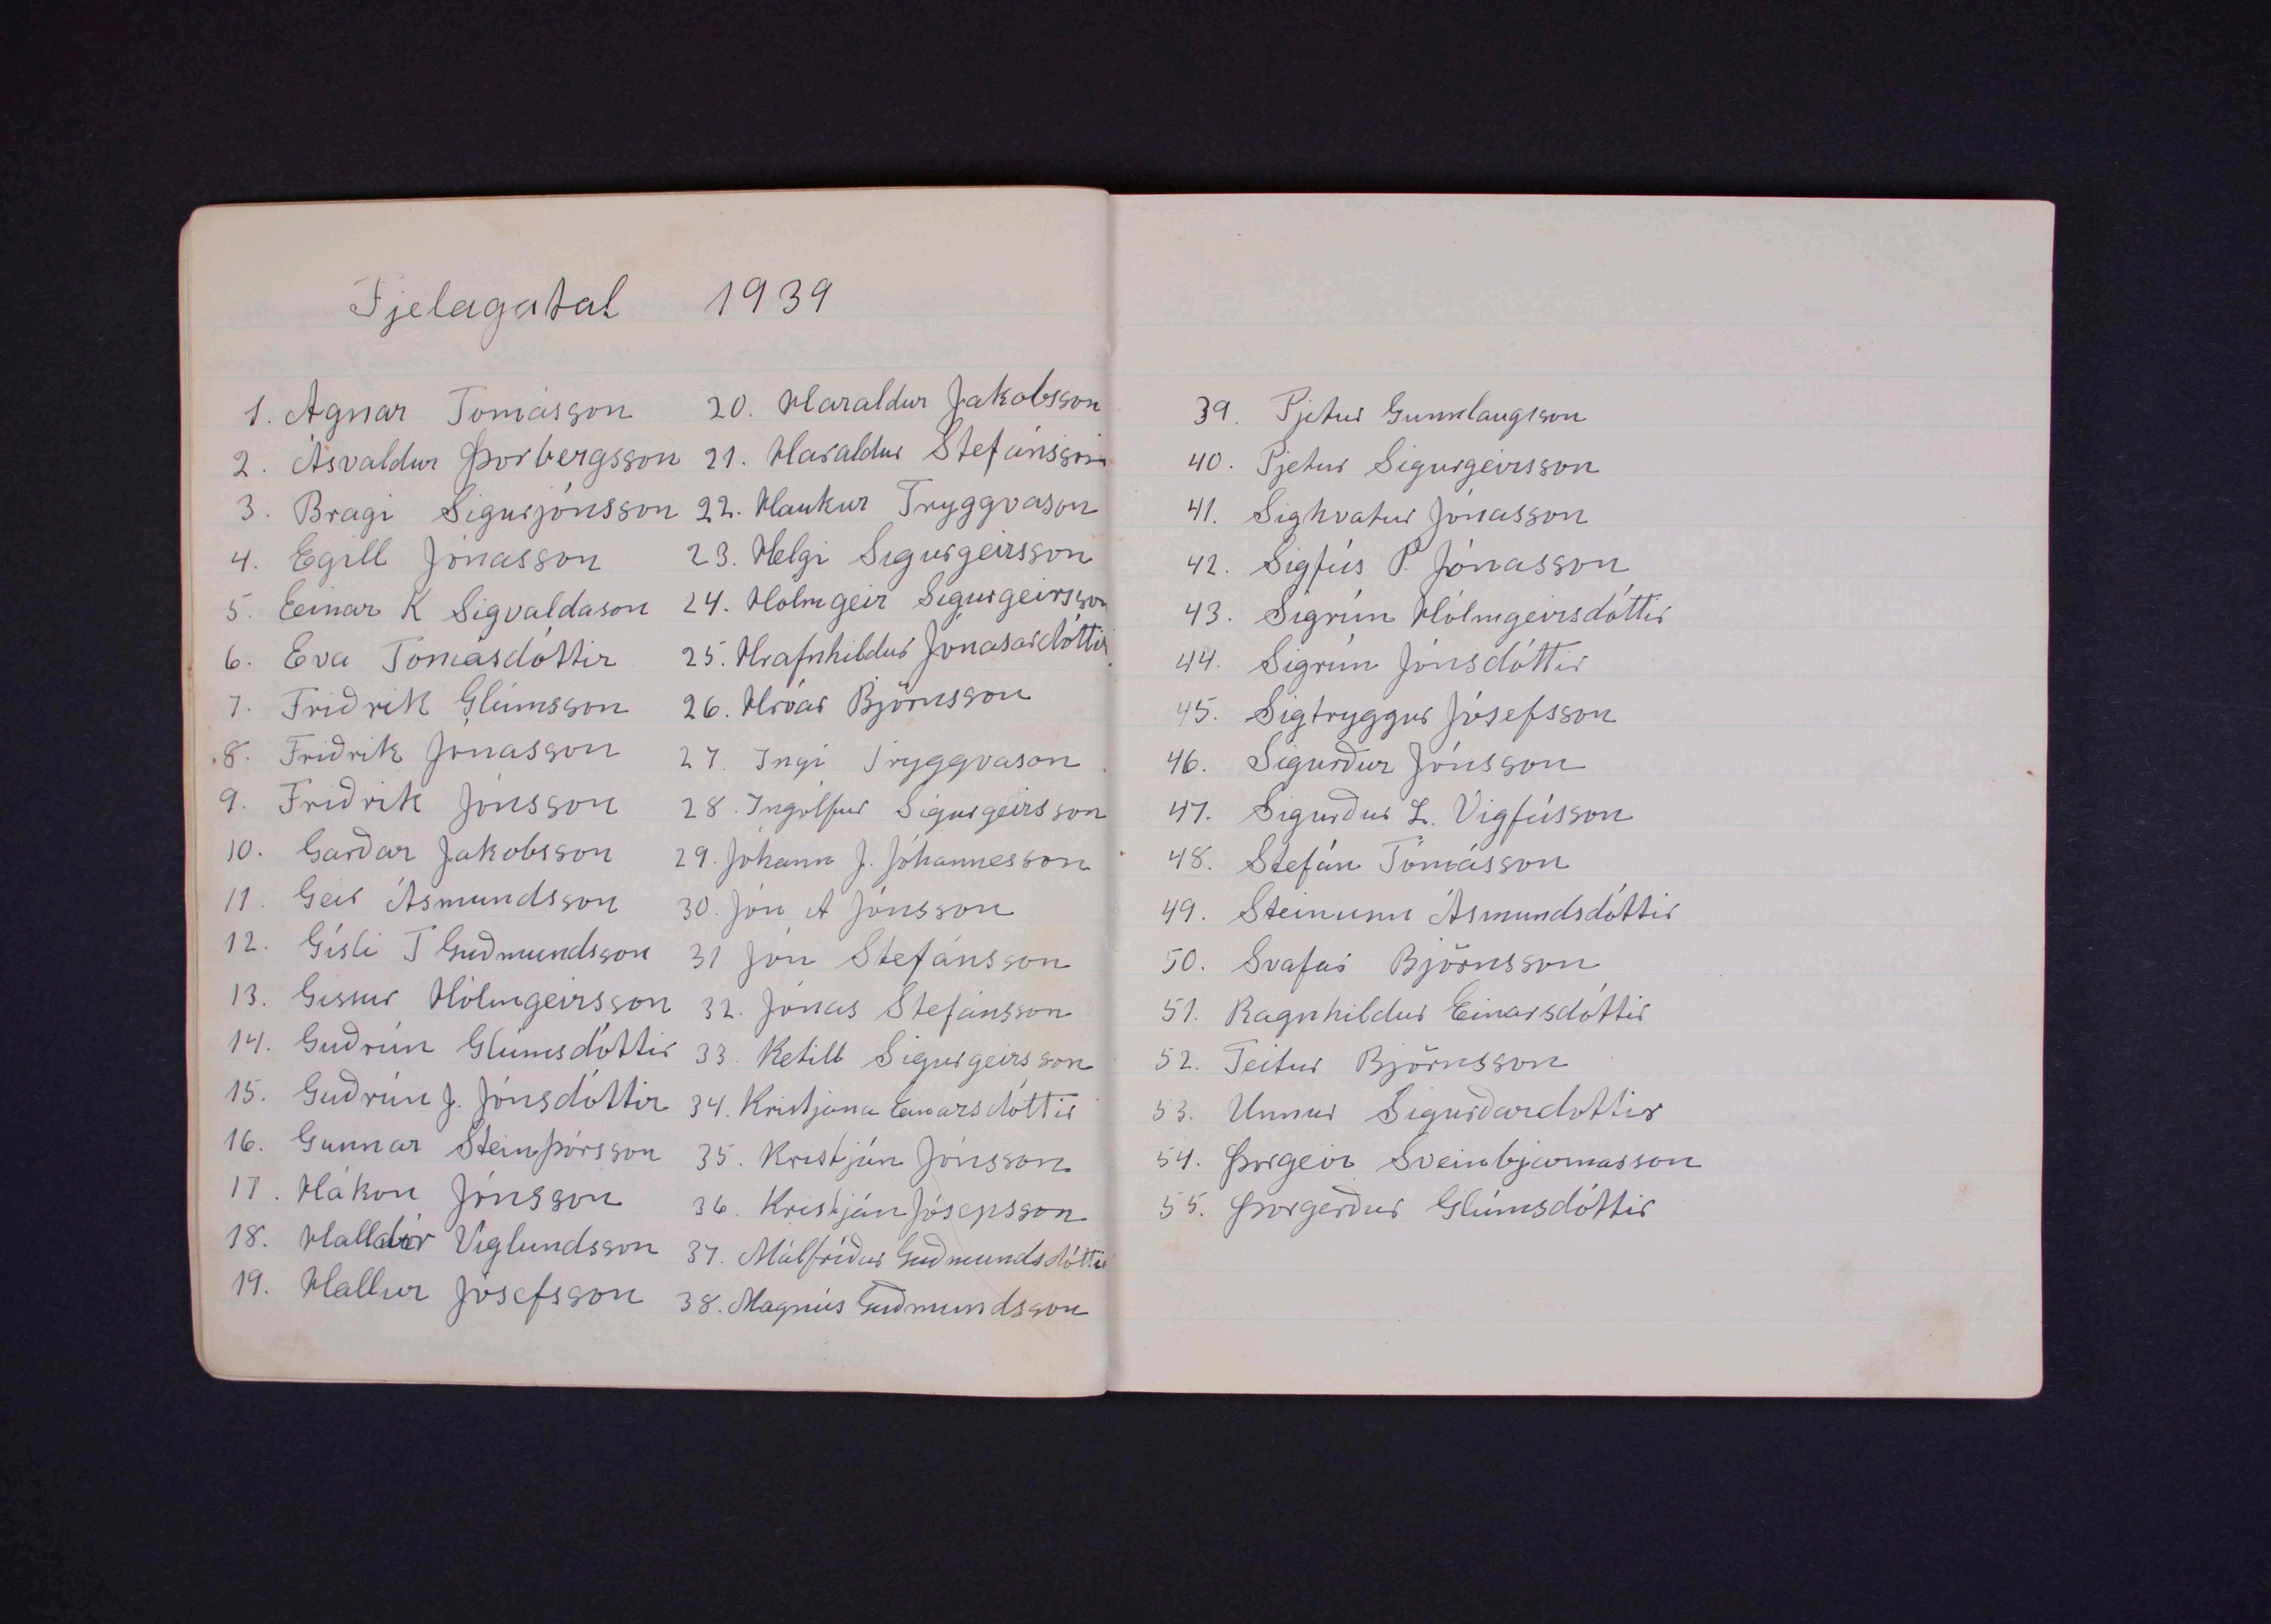 Fjelagatal 1939
1. Agnar Tómasson
2. Ásvaldur Þorbergsson
3. Bragi Sigurjónsson
4. Egill Jónasson
5. Einar K Sigvaldason
6. Eva Tómasdóttir
7. Friðrik Glúmsson
8. Friðrik Jónasson
9. Friðrik Jónsson
10. Garðar Jakobsson
11. Geir Ásmundsson
12. Gísli T Guðmundsson
13. Gissur Hólmgeirsson
14. Guðrún Glúmsdóttir
15. Guðrún J. Jónsdóttir
16. Gunnar Steinþórsson
17. Hákon Jónsson
18. Halldór Víglundsson
19. Hallur Jósefsson
20. Haraldur Jakobsson
21. Haraldur Stefánsson
22. Haukur Tryggvason
23. Helgi Sigurgeirsson
24. Hólmgeir Sigurgeirsson
25. Hrafnhildur Jónasardóttir
26. Hróar Björnsson
27. Ingi Tryggvason
28. Ingólfur Sigurgeirsson
29. Jóhann J. Jóhannesson
30. Jón A Jónsson
31 Jón Stefánsson
32. Jónas Stefánsson
33. Ketill Sigurgeirsson
34. Kristjana Einarsdóttir
35. Kristján Jónsson
36. Kristján Jósepsson
37. Málfríður Guðmundsdóttir
38. Magnús Guðmundsson
39. Pjetur Gunnlaugsson
40. Pjetur Sigurgeirsson
41. Sighvatur Jónasson
42. Sigfús P. Jónasson
43. Sigrún Hólmgeirsdóttir
44. Sigrún Jónsdóttir
45. Sigtryggur Jósefsson
46. Sigurður Jónsson
47. Sigurður L. Vigfússon
48. Stefán Tómásson
49. Steinunn Ásmundsdóttir
50. Svafar Björnsson
51. Ragnhildur Einarsdóttir
52. Teitur Björnsson
53. Unnur Sigurðardottir
54. Þorgeir Sveinbjarnarsson
55. Þorgerður Glúmsdóttir